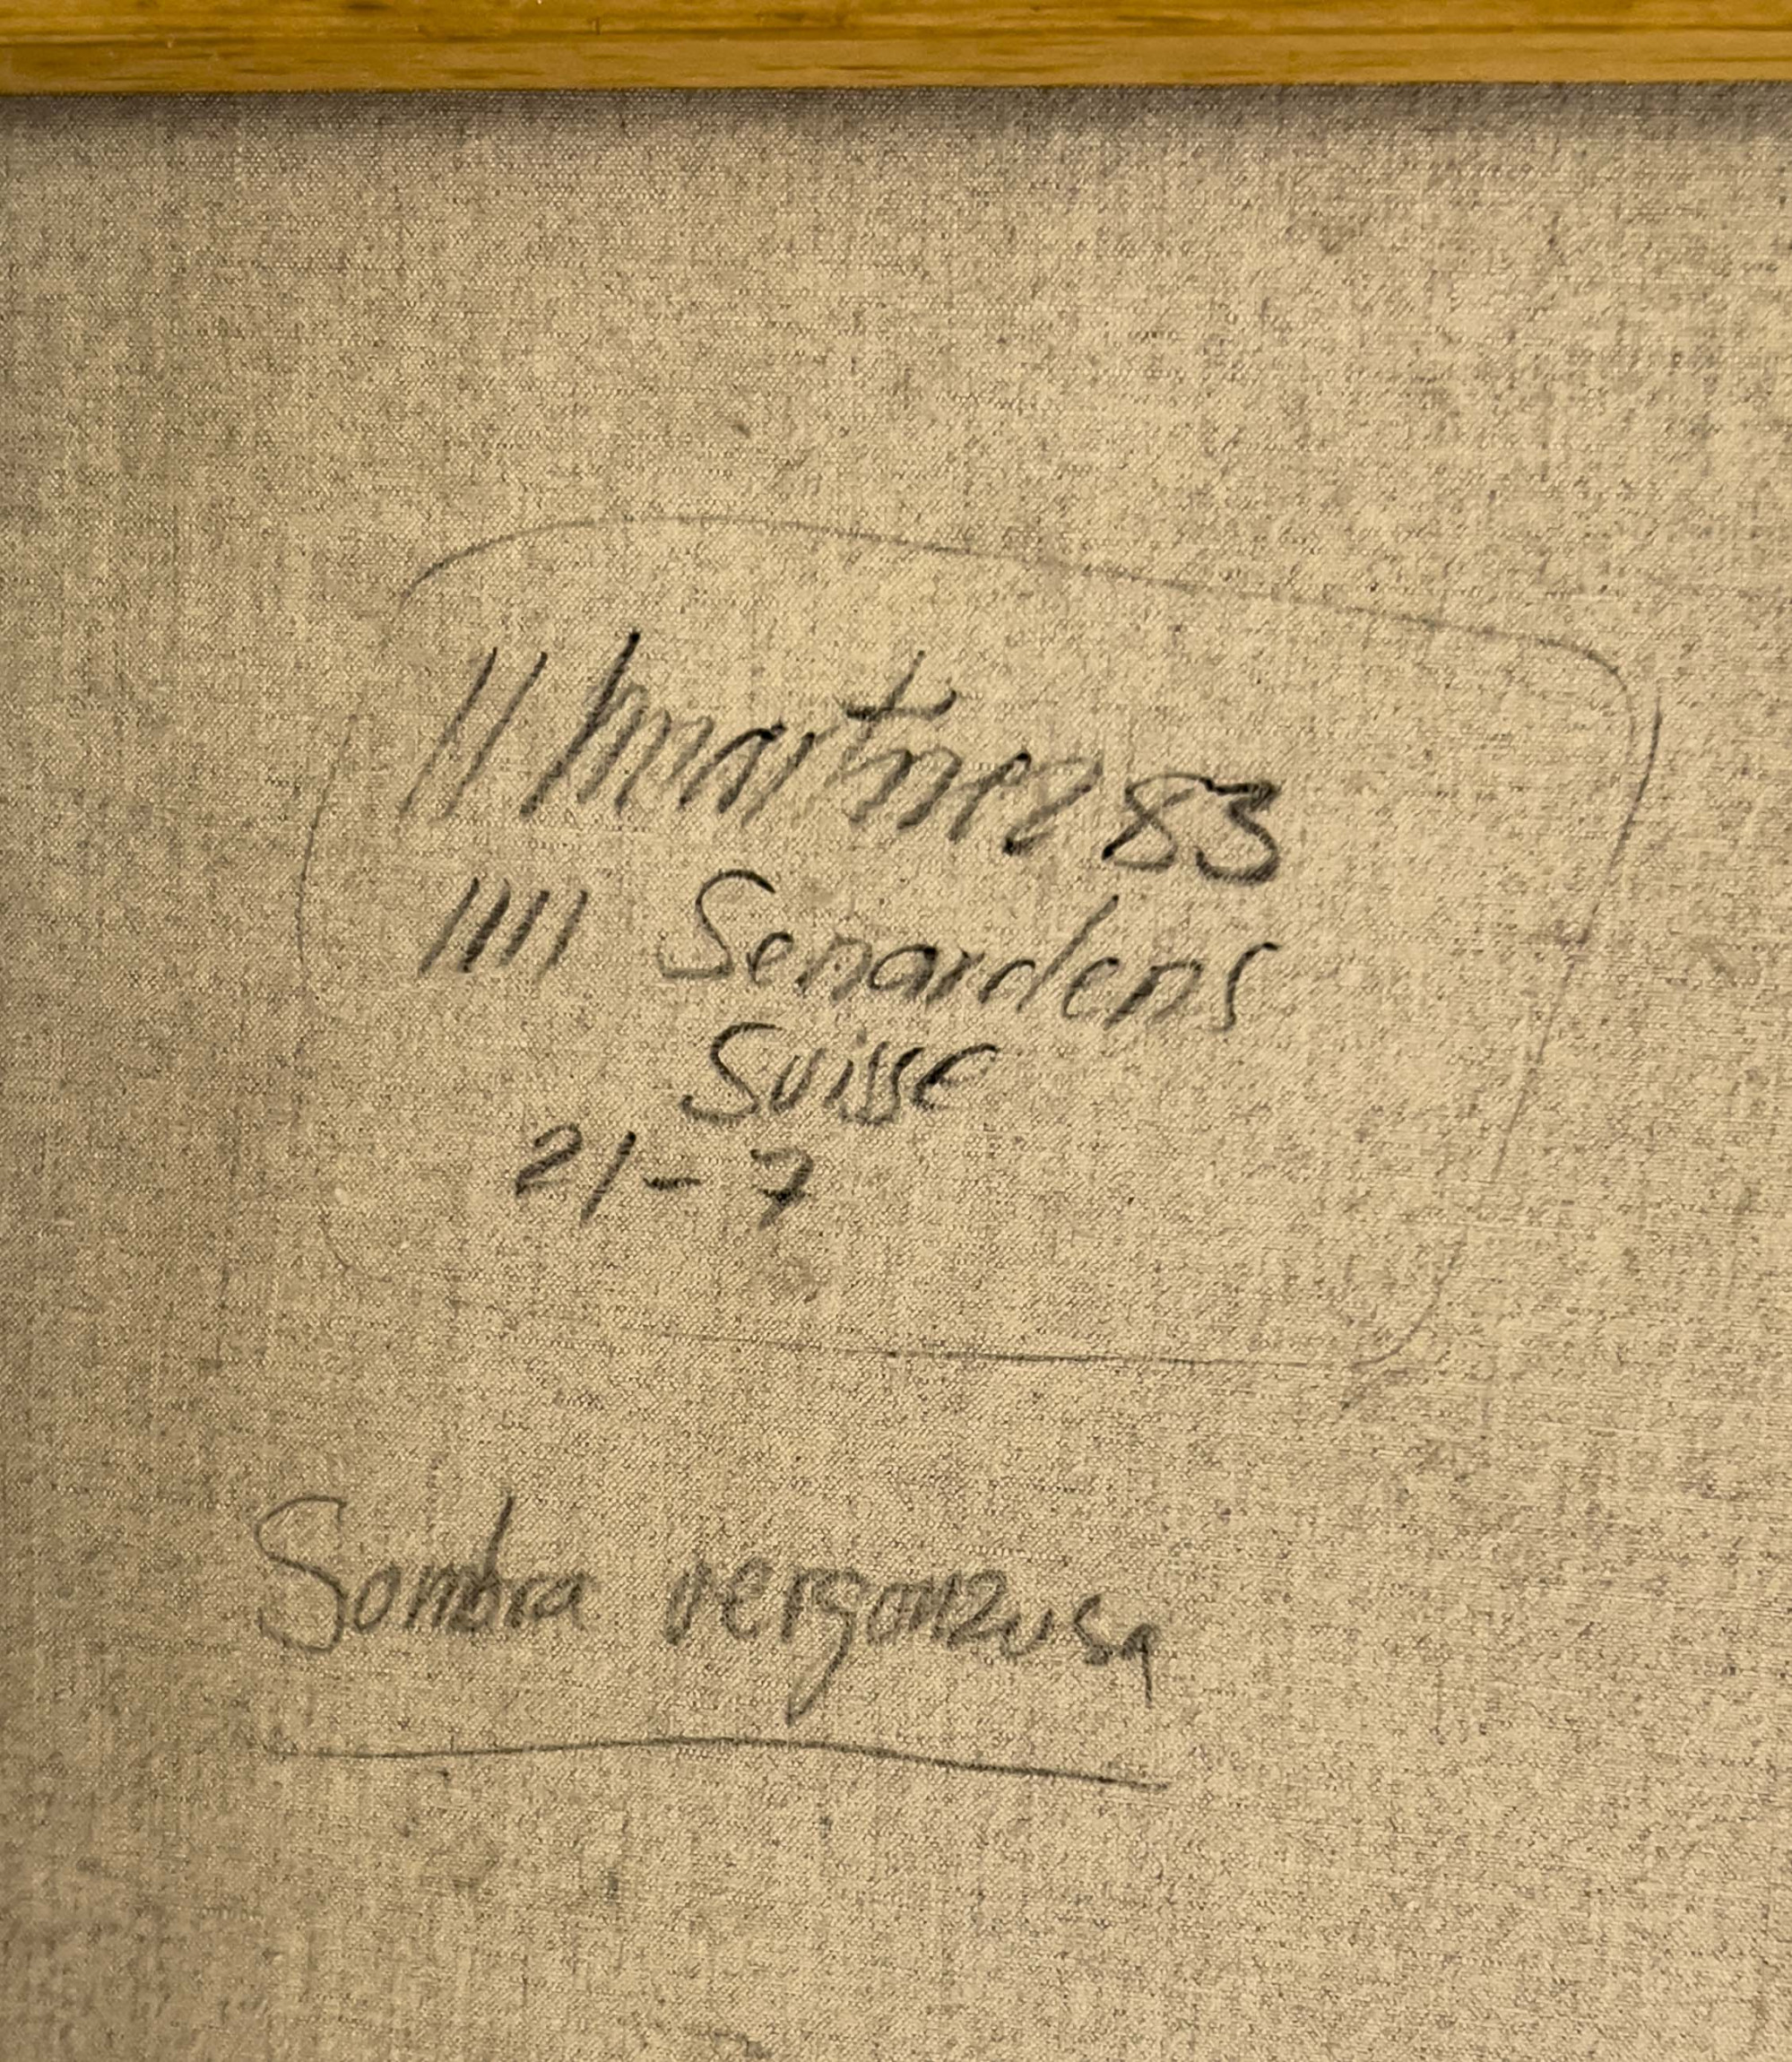 Martinez 83
1111 Senardens
Suisse
21-7
Sombra vergonzusa